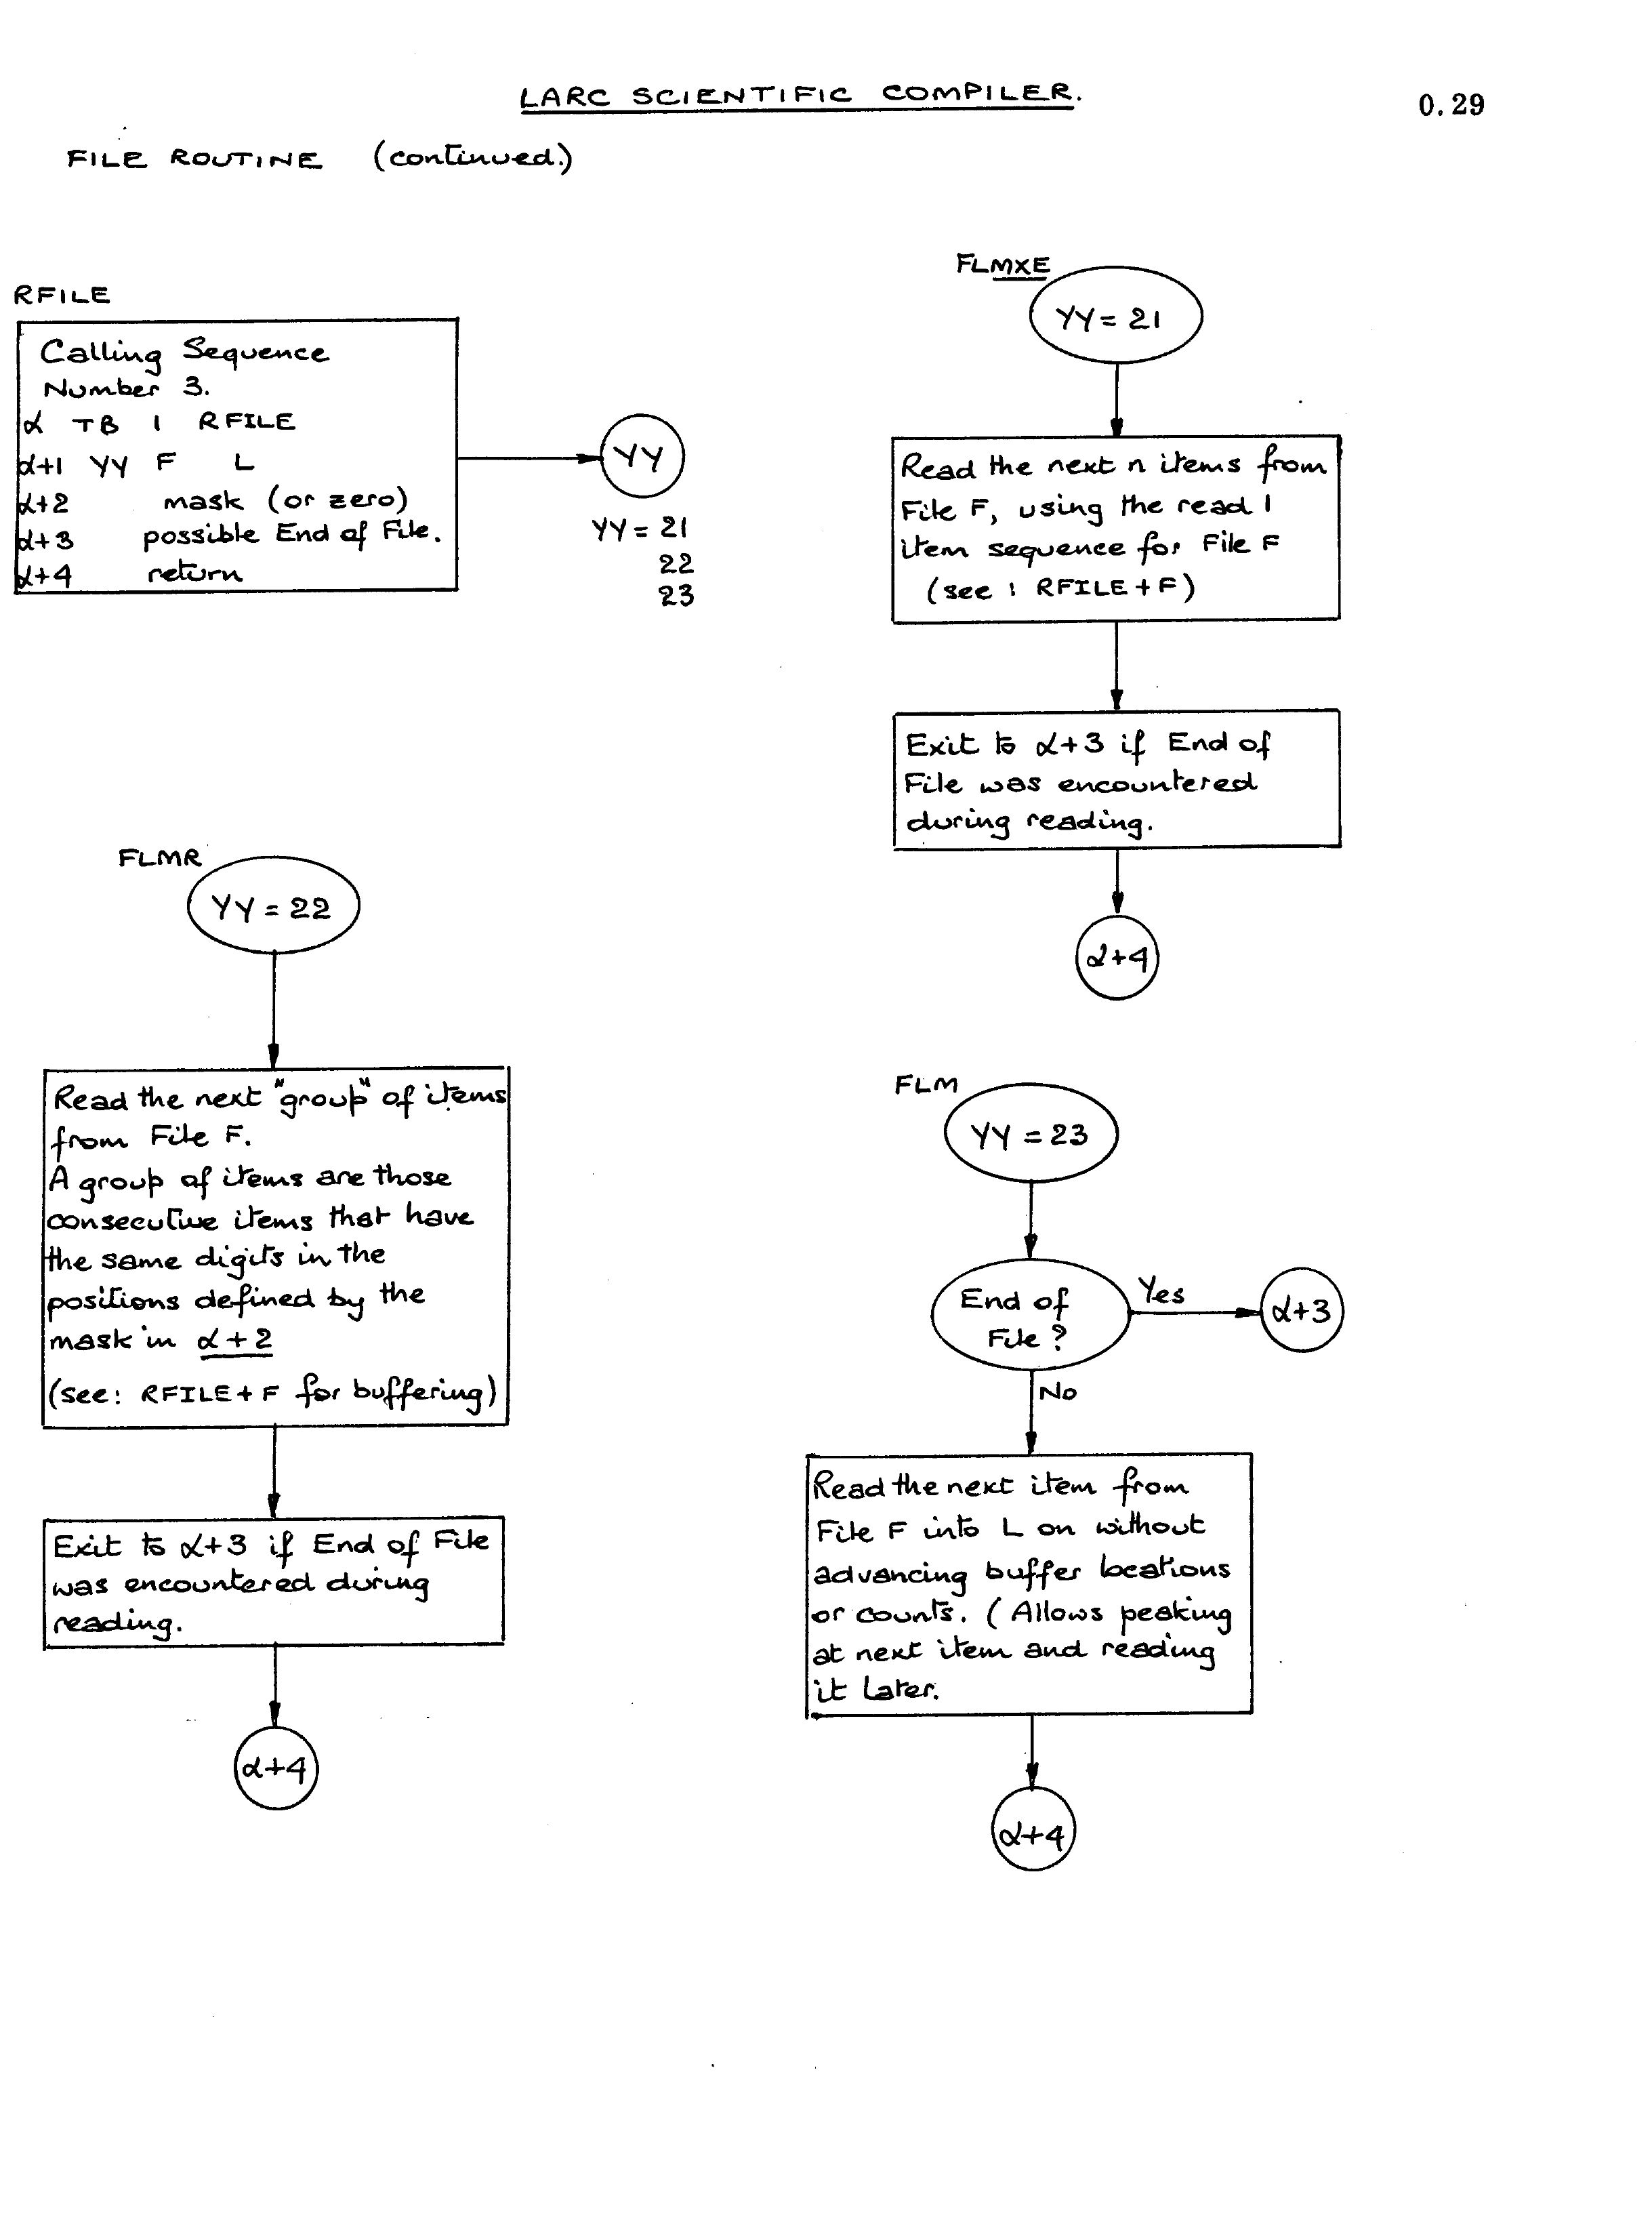 LARC SCIENTIFIC COMPILER.
0.29
FILE ROUTINE (continued.)
RFILE
Calling Sequence
Number 3.
α TB 1 RFILE
α+1 YY F L
α+2 mask (or zero)
α+3 possible End of File.
α+4 return
YY
YY = 21
22
23
FLMXE
YY = 21
Read the next n items from
File F, using the read 1
item sequence for File F
(see : RFILE + F)
Exit to α+3 if End of
File was encountered
during reading.
α+4
FLMR
YY = 22
Read the next "group" of items
from File F.
A group of items are those
consecutive items that have
the same digits in the
positions defined by the
mask in α+2
(see: RFILE + F for buffering)
Exit to α+3 if End of File
was encountered during
reading.
α+4
FLM
YY = 23
End of
File?
Yes
α+3
No
Read the next item from
File F into L on without
advancing buffer locations
or counts. (Allows peaking
at next item and reading
it later.
α+4